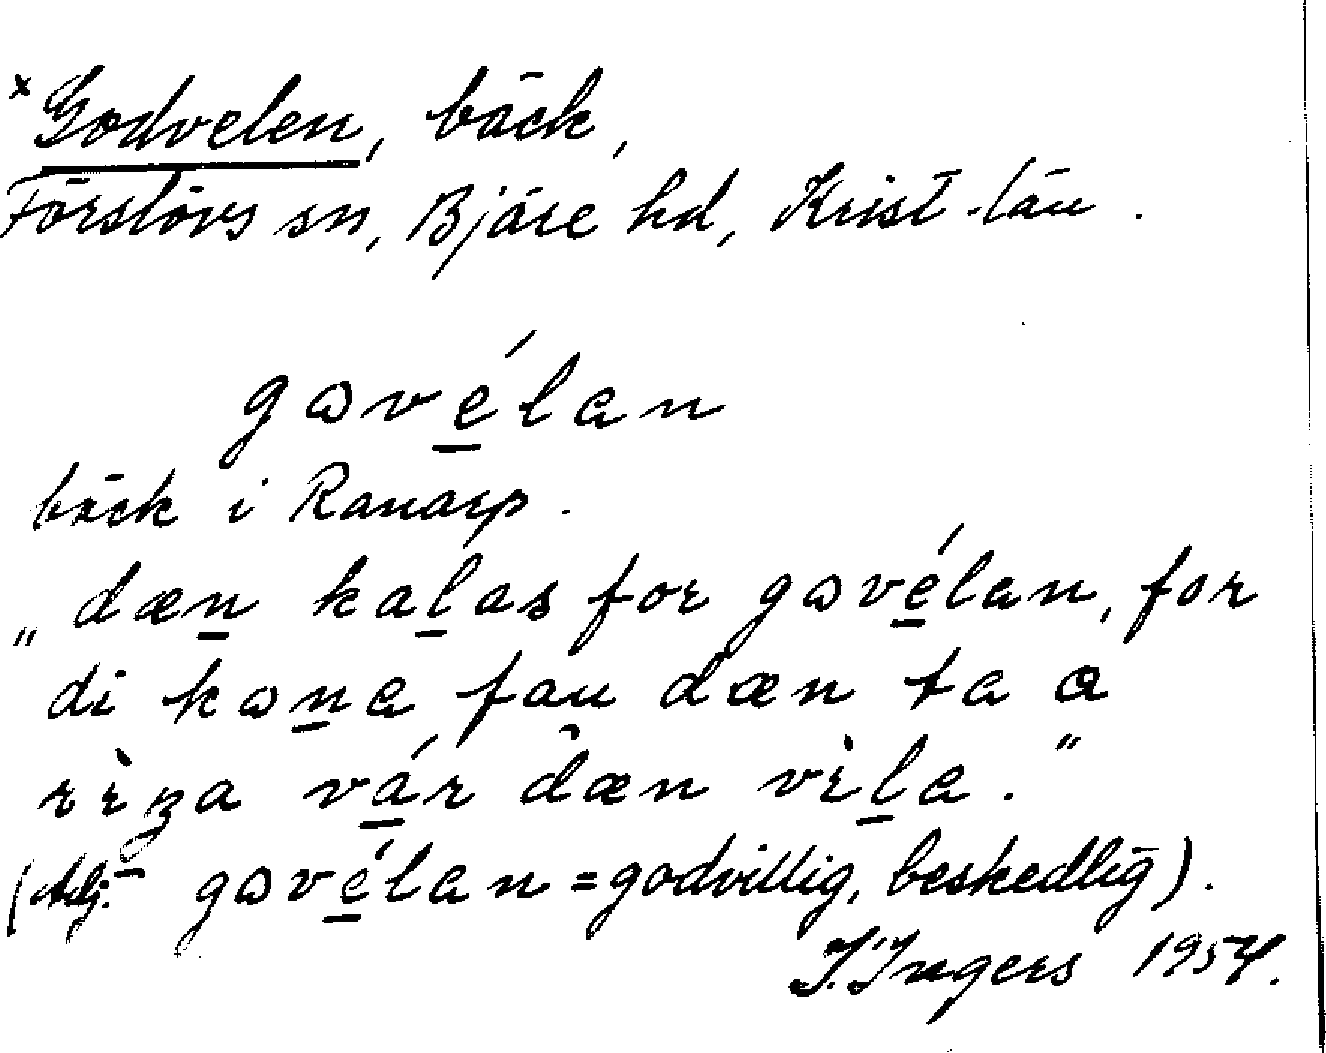 × Godvelen, bäck,
Förslövs sn, Bjäre hd, Krist. län.
gɷvé̲lan
bäck i Ranarp.
„dæn̲ kal̲as for gɷvé̲lan, for
di kɷn̲a fau dæn ta a
rɩ̀ʓa vá̲r dæn vɩ̀l̲a."
(Adj. gɷvé̲lan = godvillig, beskedlig).
I. Ingers 1954.